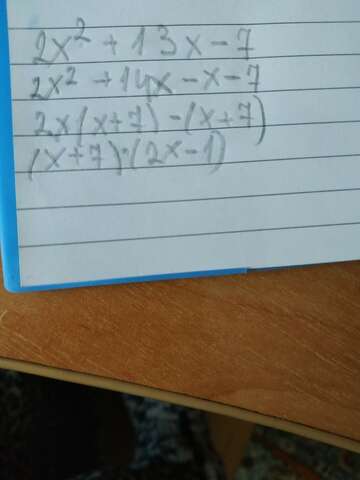 2x² + 13x - 7
2x² + 14x - x - 7
2x(x+7) - (x+7)
(x+7)·(2x-1)